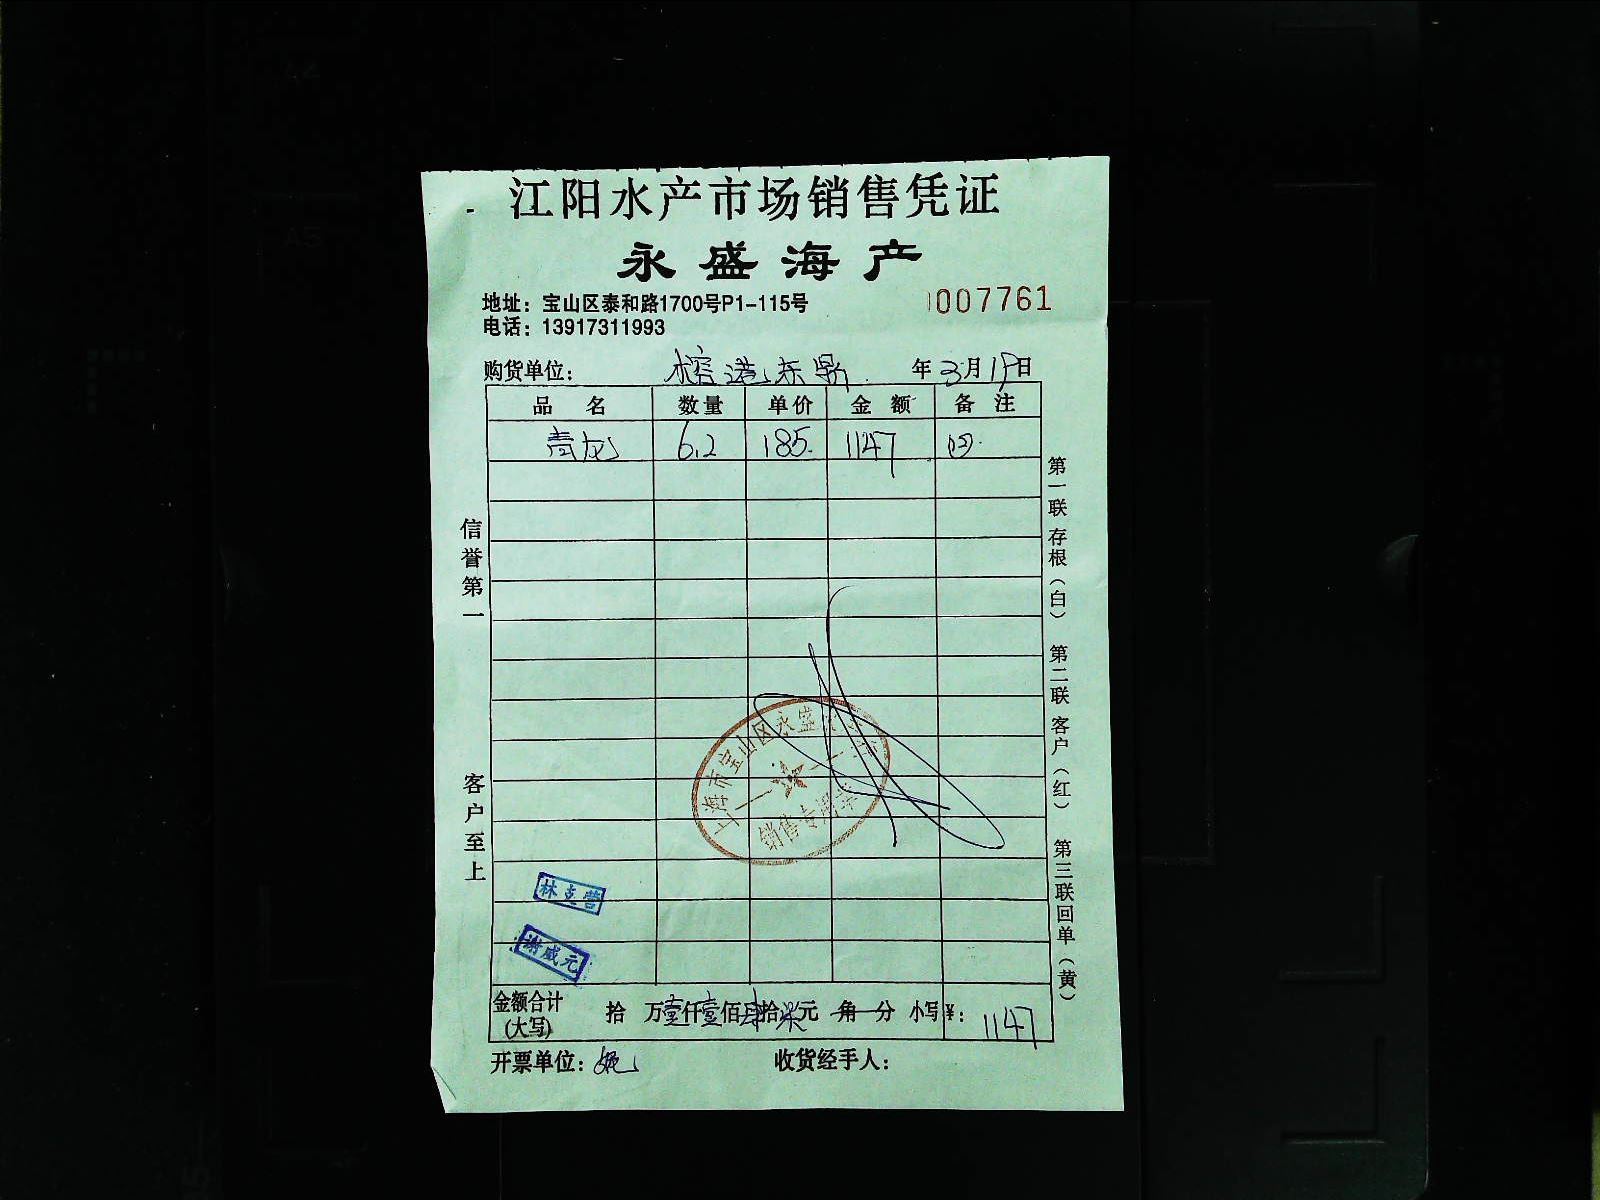 江阳水产市场销售凭证
永盛海产
地址：宝山区泰和路1700号P1-115号
0007761
电话：13917311993
购货单位：榕港东鼎 年3月19日
品名 数量 单价 金额 备注
青龙 6.2 185. 1147
信誉第一 客户至上
第一联存根（白） 第二联客户（红） 第三联回单（黄）
上海市宝山区永盛
销售专用章
林立营
谢威元
金额合计（大写） 拾万壹仟壹佰肆拾柒元角分 小写¥：1147
开票单位： 收货经手人：